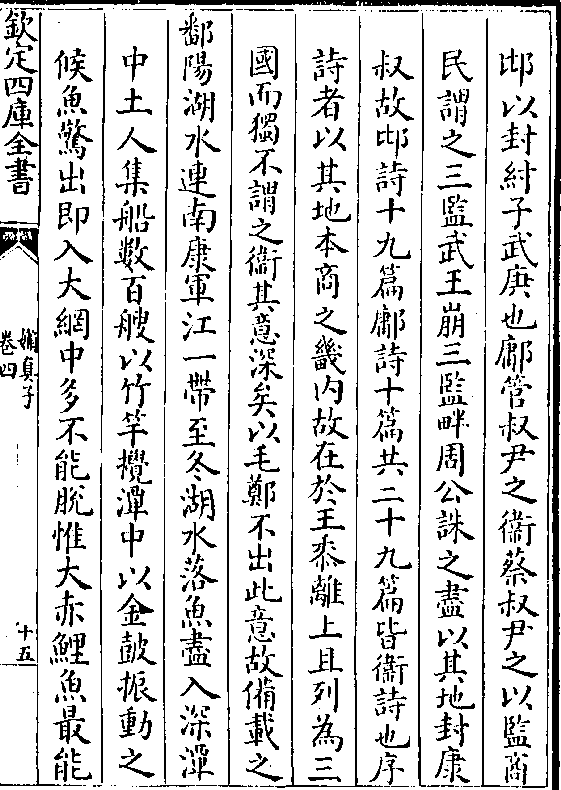 邶以封紂子武庚也鄘管叔尹之衞蔡叔尹之以監商
民謂之三監武王崩三監畔周公誅之盡以其地封康
叔故邶詩十九篇鄘詩十篇共二十九篇皆衞詩也序
詩者以其地本商之畿内故在於王黍離上且列為三
國而獨不謂之衞其意深矣以毛鄭不出此意故備載之
鄱陽湖水連南康軍江一帶至冬湖水落魚盡入深潭
中土人集船數百艘以竹竿攪潭中以金鼓振動之
候魚驚出即入大網中多不能脫惟大赤鯉魚最能
欽定四庫全書
嬾真子
卷四
十五